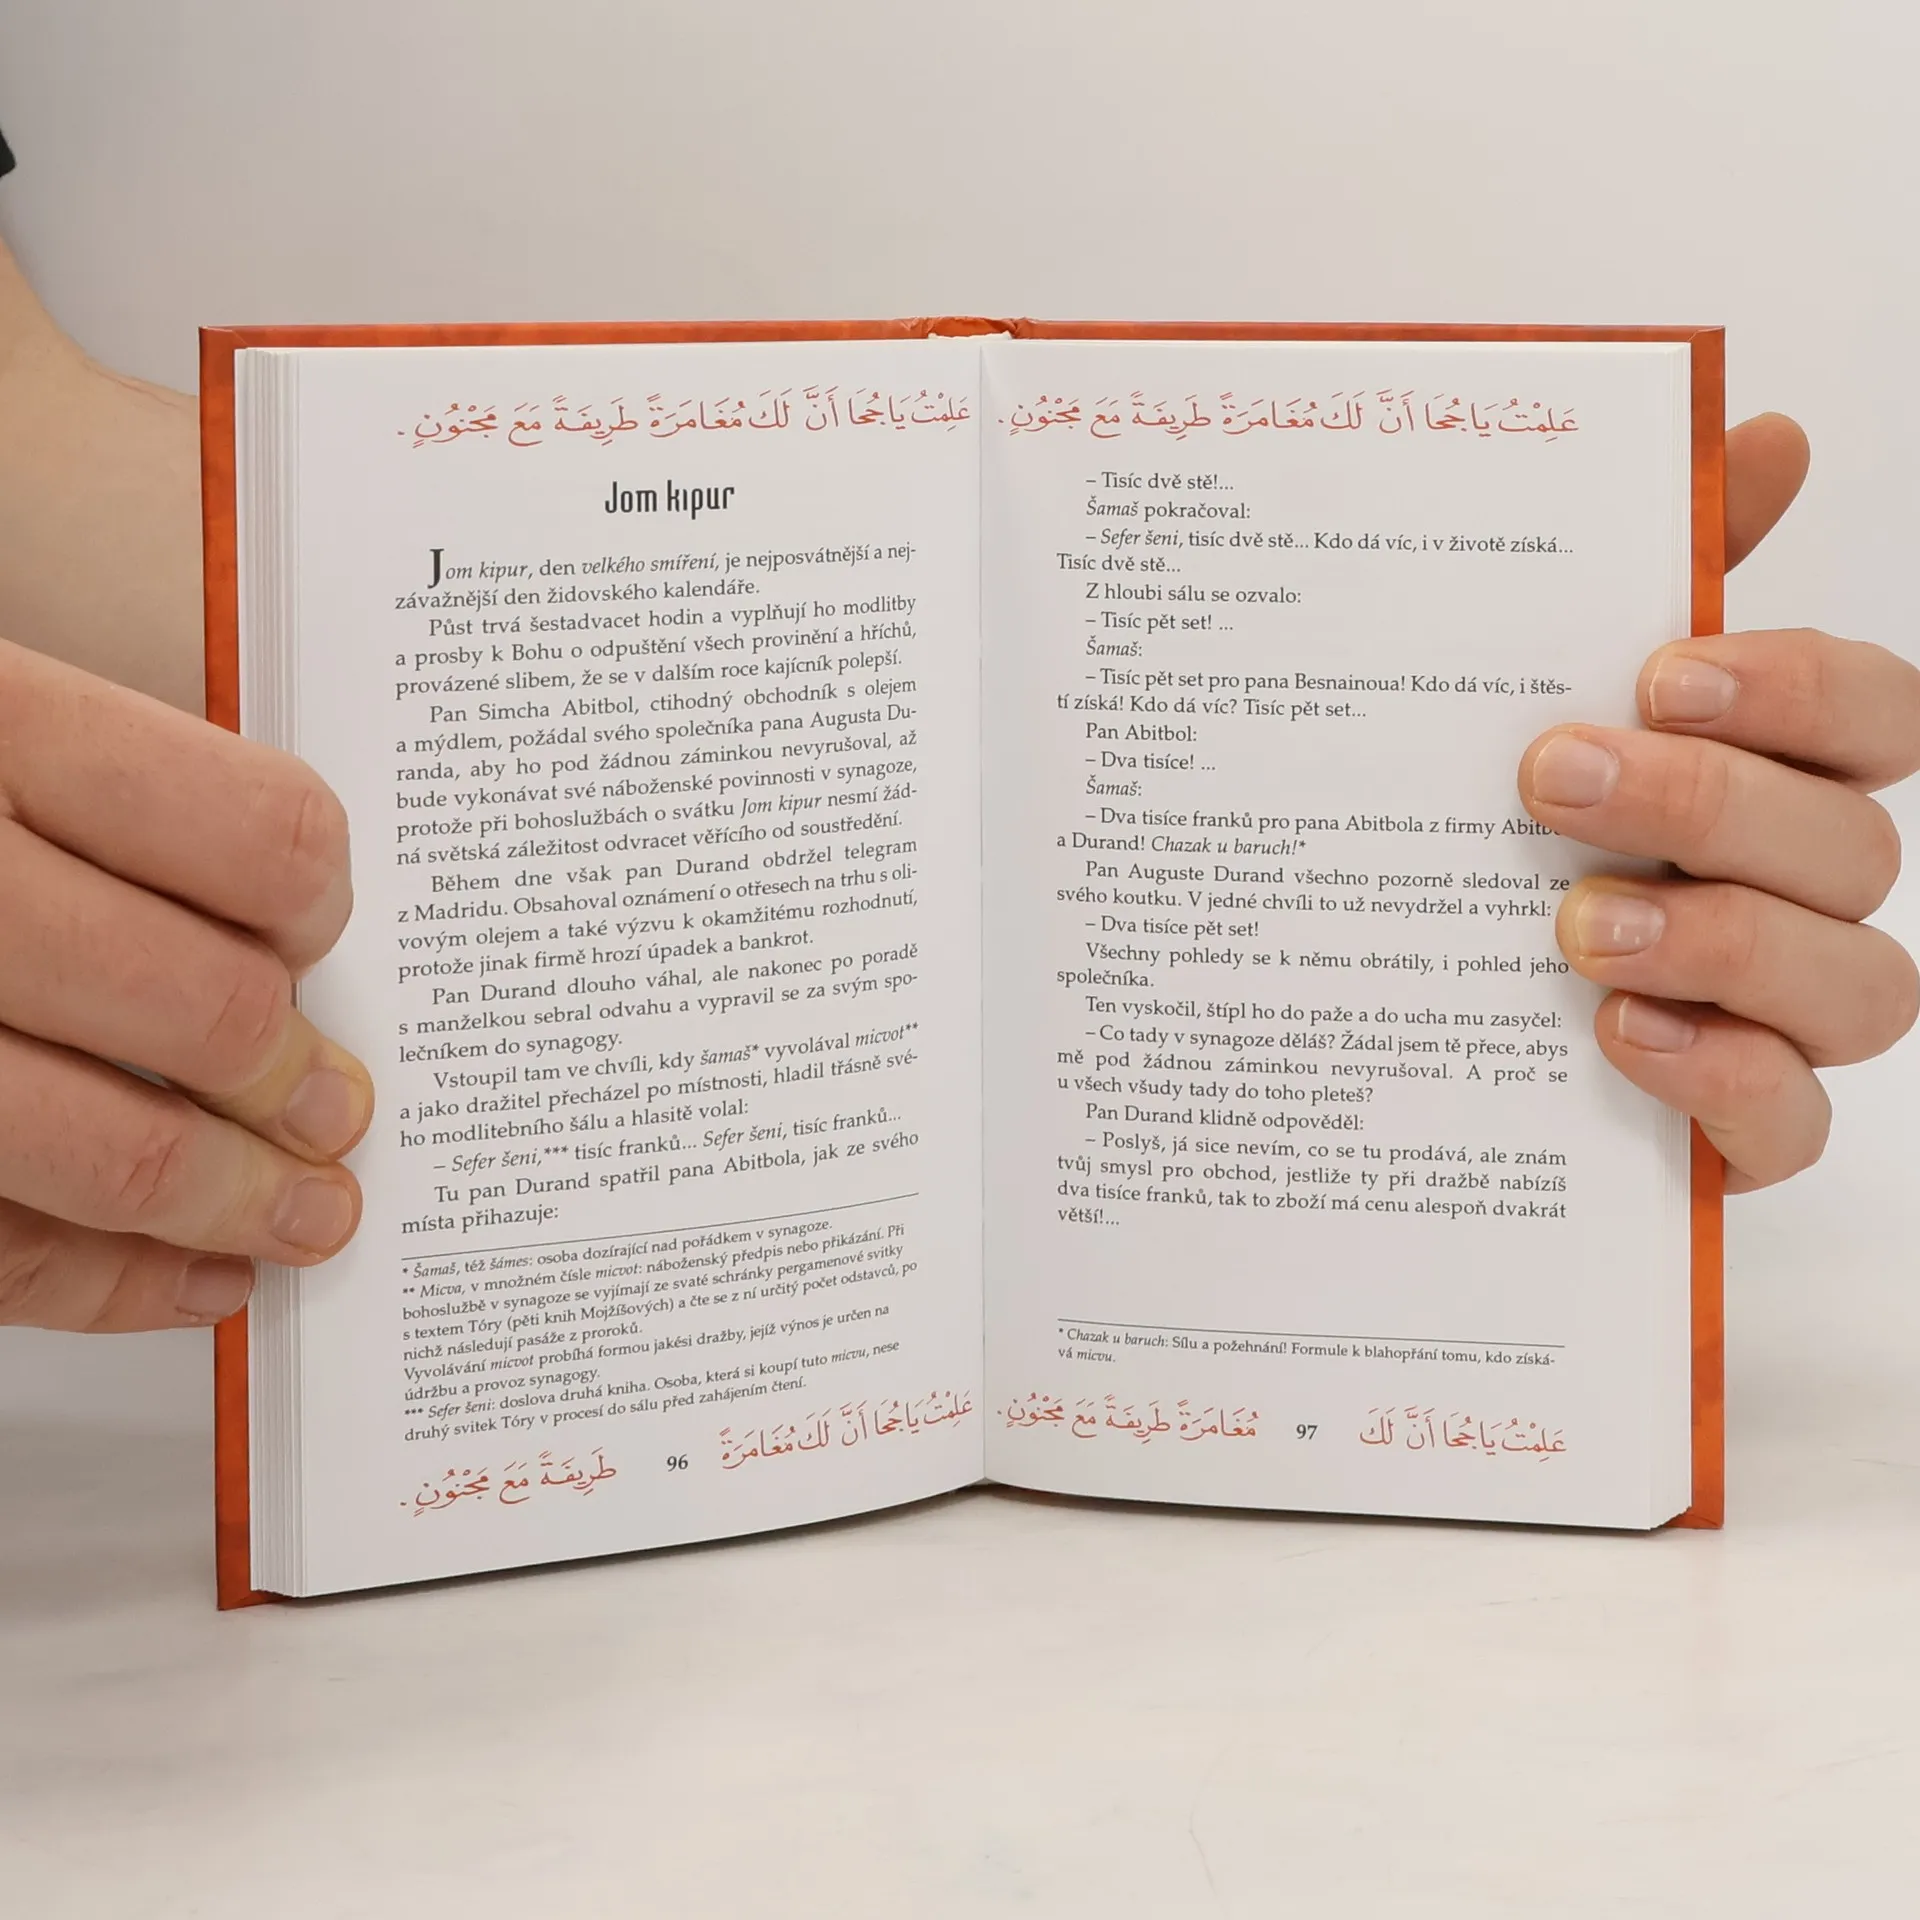 عَلِمْتُ يَا جُحَا أَنَّ لَكَ مُغَامَرَةً طَرِيفَةً مَعَ مَجْنُونٍ .
Jom kipur
Jom kipur, den velkého smíření, je nejposvátnější a nej-
závažnější den židovského kalendáře.
Půst trvá šestadvacet hodin a vyplňují ho modlitby
a prosby k Bohu o odpuštění všech provinění a hříchů,
provázené slibem, že se v dalším roce kajícník polepší.
Pan Simcha Abitbol, ctihodný obchodník s olejem
a mýdlem, požádal svého společníka pana Augusta Du-
randa, aby ho pod žádnou záminkou nevyrušoval, až
bude vykonávat své náboženské povinnosti v synagoze,
protože při bohoslužbách o svátku Jom kipur nesmí žád-
ná světská záležitost odvracet věřícího od soustředění.
Během dne však pan Durand obdržel telegram
z Madridu. Obsahoval oznámení o otřesech na trhu s oli-
vovým olejem a také výzvu k okamžitému rozhodnutí,
protože jinak firmě hrozí úpadek a bankrot.
Pan Durand dlouho váhal, ale nakonec po poradě
s manželkou sebral odvahu a vypravil se za svým spo-
lečníkem do synagogy.
Vstoupil tam ve chvíli, kdy šamaš* vyvolával micvot**
a jako dražitel přecházel po místnosti, hladil třásně své-
ho modlitebního šálu a hlasitě volal:
– Sefer šeni,*** tisíc franků... Sefer šeni, tisíc franků...
Tu pan Durand spatřil pana Abitbola, jak ze svého
místa přihazuje:
* Šamaš, též šámes: osoba dozírající nad pořádkem v synagoze.
** Micva, v množném čísle micvot: náboženský předpis nebo přikázání. Při
bohoslužbě v synagoze se vyjímají ze svaté schránky pergamenové svitky
s textem Tóry (pěti knih Mojžíšových) a čte se z ní určitý počet odstavců, po
nichž následují pasáže z proroků.
Vyvolávání micvot probíhá formou jakési dražby, jejíž výnos je určen na
údržbu a provoz synagogy.
*** Sefer šeni: doslova druhá kniha. Osoba, která si koupí tuto micvu, nese
druhý svitek Tóry v procesí do sálu před zahájením čtení.
عَلِمْتُ يَا جُحَا أَنَّ لَكَ مُغَامَرَةً 96 طَرِيفَةً مَعَ مَجْنُونٍ .
عَلِمْتُ يَا جُحَا أَنَّ لَكَ مُغَامَرَةً طَرِيفَةً مَعَ مَجْنُونٍ .
– Tisíc dvě stě!...
Šamaš pokračoval:
– Sefer šeni, tisíc dvě stě... Kdo dá víc, i v životě získá...
Tisíc dvě stě...
Z hloubi sálu se ozvalo:
– Tisíc pět set! ...
Šamaš:
– Tisíc pět set pro pana Besnainoua! Kdo dá víc, i štěs-
tí získá! Kdo dá víc? Tisíc pět set...
Pan Abitbol:
– Dva tisíce! ...
Šamaš:
– Dva tisíce franků pro pana Abitbola z firmy
a Durand! Chazak u baruch!*
Pan Auguste Durand všechno pozorně sledoval ze
svého koutku. V jedné chvíli to už nevydržel a vyhrkl:
– Dva tisíce pět set!
Všechny pohledy se k němu obrátily, i pohled jeho
společníka.
Ten vyskočil, štípl ho do paže a do ucha mu zasyčel:
– Co tady v synagoze děláš? Žádal jsem tě přece, abys
mě pod žádnou záminkou nevyrušoval. A proč se
u všech všudy tady do toho pleteš?
Pan Durand klidně odpověděl:
– Poslyš, já sice nevím, co se tu prodává, ale znám
tvůj smysl pro obchod, jestliže ty při dražbě nabízíš
dva tisíce franků, tak to zboží má cenu alespoň dvakrát
větší!...
* Chazak u baruch: Sílu a požehnání! Formule k blahopřání tomu, kdo získá-
vá micvu.
عَلِمْتُ يَا جُحَا أَنَّ لَكَ 97 مُغَامَرَةً طَرِيفَةً مَعَ مَجْنُونٍ .